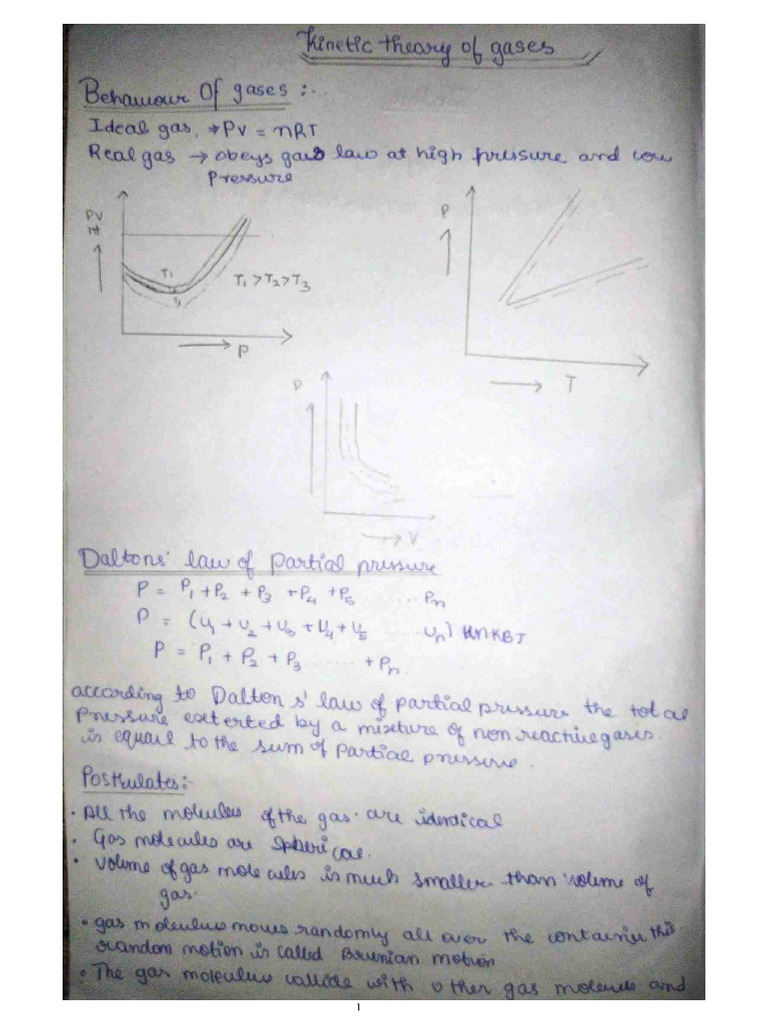 Kinetic theory of gases
Behaviour Of gases :-
Ideal gas, → PV = nRT
Real gas → obeys gas law at high pressure and low
Pressure
PV
P
T1
T1 > T2 > T3
P
T
P
V
Daltons' law of Partial pressure
P = P1 + P2 + P3 + P4 + P5 ...... Pn
P = (U1 + U2 + U3 + U4 + U5 ..... Un) KBT
P = P1 + P2 + P3 ...... + Pn
according to Dalton s' law of partial pressure the total
Pressure exterted by a mixture of non reactive gasis
is equail to the sum of partial pressure.
Postkulates:-
• All the molecules of the gas are identical
• Gas molecules are Spherical.
• volume of gas molecules is much smaller than volume of
gas.
• gas molecules moves randomly all over the container this
random motion is called Brunian motion
• The gas molecules collide with other gas molecule and
1